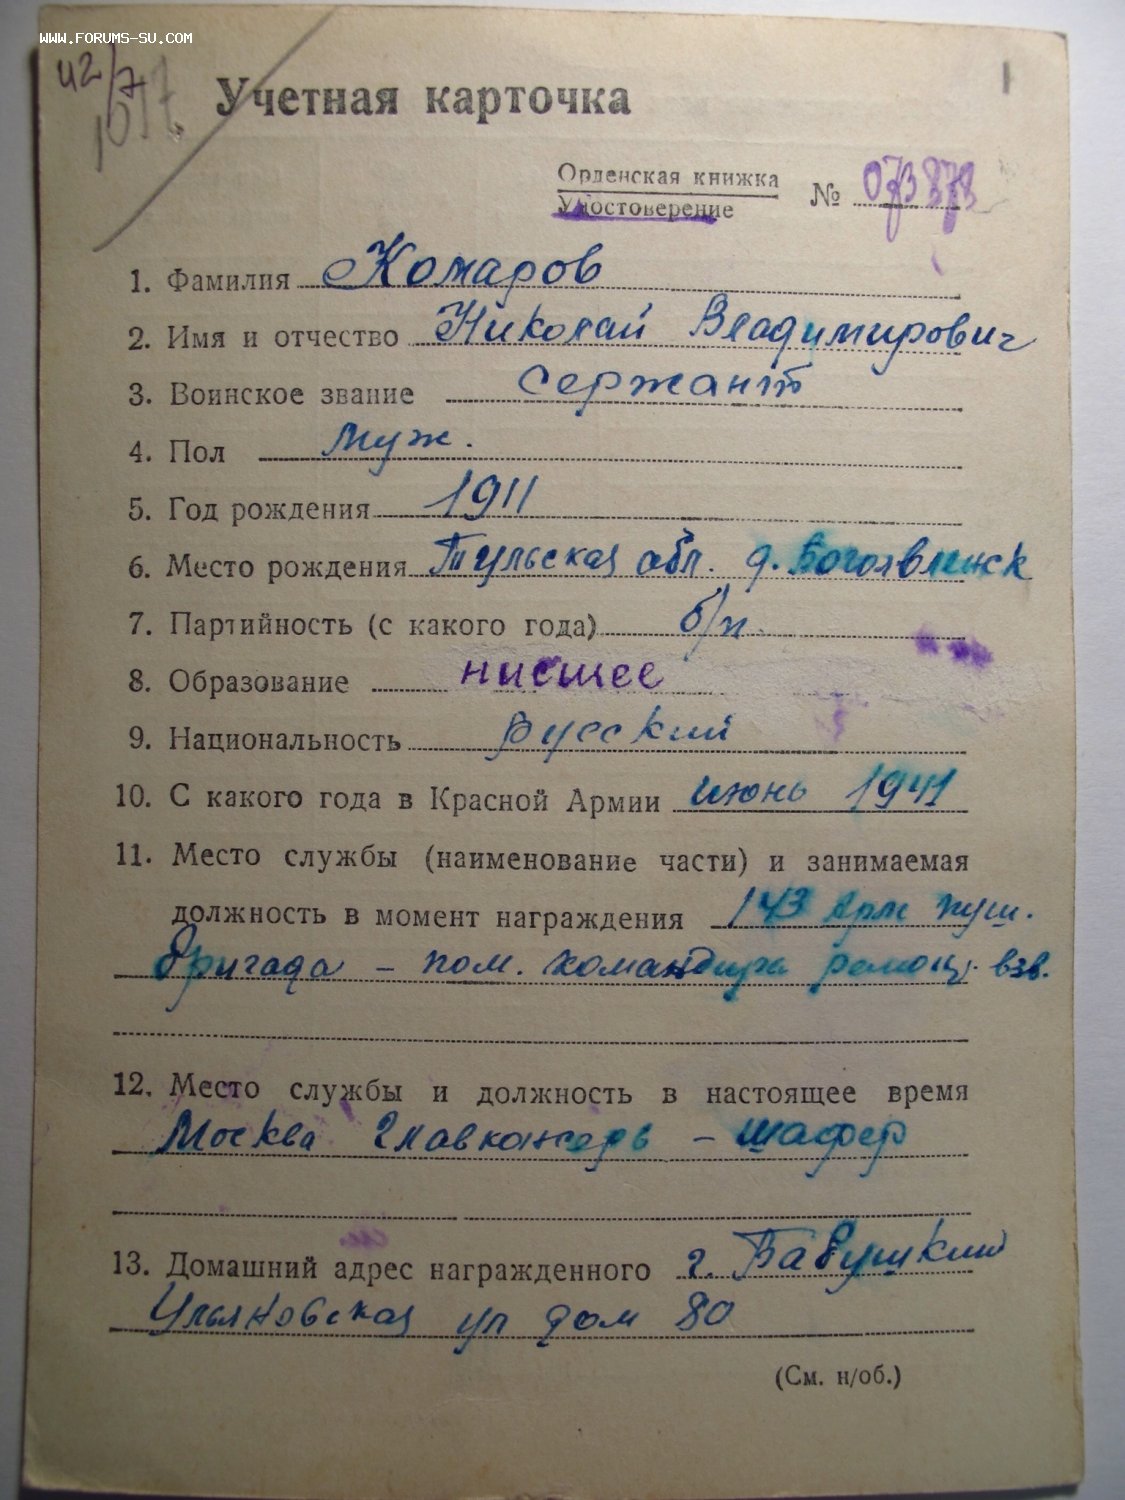 www.forums-su.com
42/7
Учетная карточка
Орденская книжка
Удостоверение
№ 073878
1. Фамилия Комаров
2. Имя и отчество Николай Владимирович
3. Воинское звание Сержант
4. Пол муж.
5. Год рождения 1911
6. Место рождения Тульская обл. д. Богоявленск
7. Партийность (с какого года) б/п.
8. Образование нисшее
9. Национальность русский
10. С какого года в Красной Армии июнь 1941
11. Место службы (наименование части) и занимаемая
должность в момент награждения 143 Арм пуш.
бригада – пом. командира взв.
12. Место службы и должность в настоящее время
Москва Главконсерв – шафер
13. Домашний адрес награжденного г. Бабушкин
Ульяновская ул дом 80
(См. н/об.)